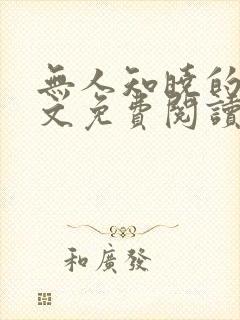 無人知曉的
文免費閱讀
和廣發